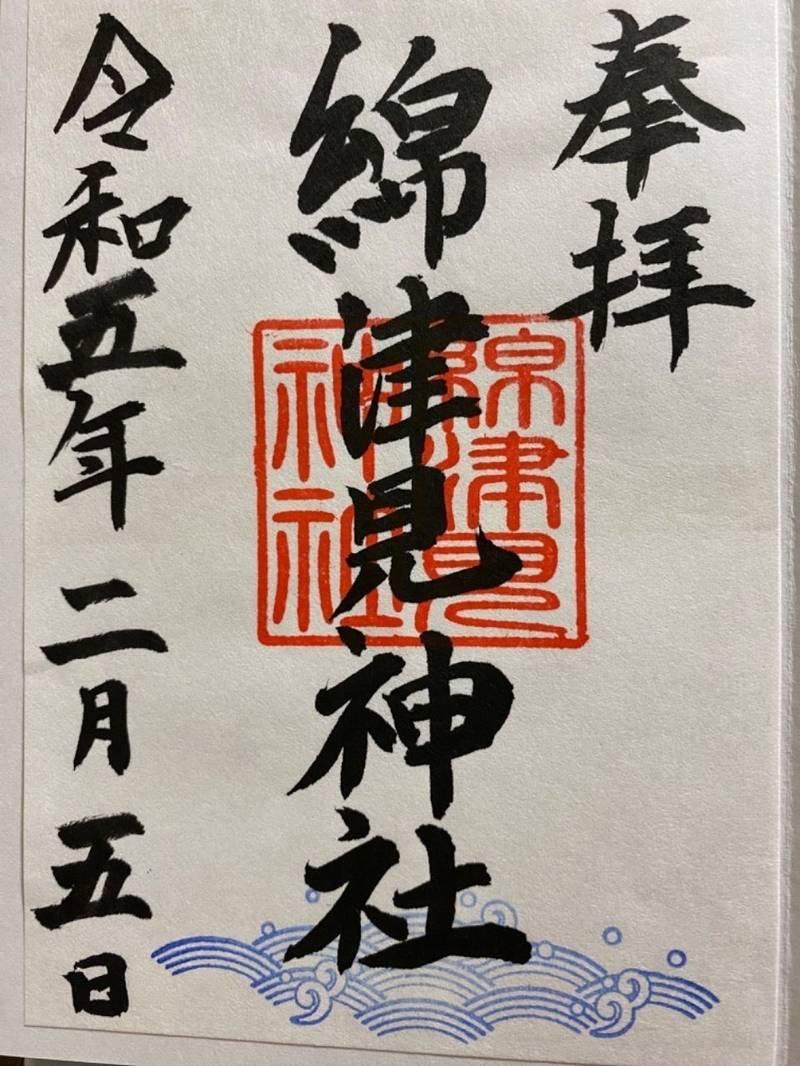 奉拝
綿津見神社
綿津見
神社
令和五年二月五日